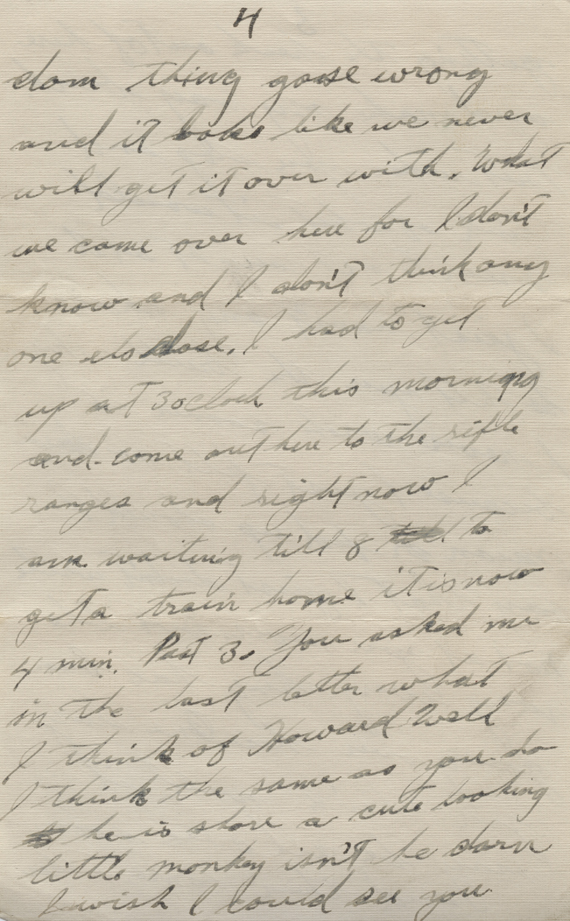 4
dam thing goose wrong
and it looks like we never
will get it over with. What
we came over here for I don't
know and I don't think any
one els dose. I had to get
up at 3 oclock this morning
and come out here to the rifle
ranges and right now I
am waiting till 8 to
get a train home it is now
4 min. Past 3. You asked me
in the last letter what
I think of Howard Well
I think the same as you do
he is shore a cute looking
little monkey isn't he darn
I wish I could see you